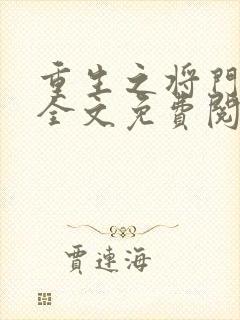 重生之将門
全文免費閱
賈連海